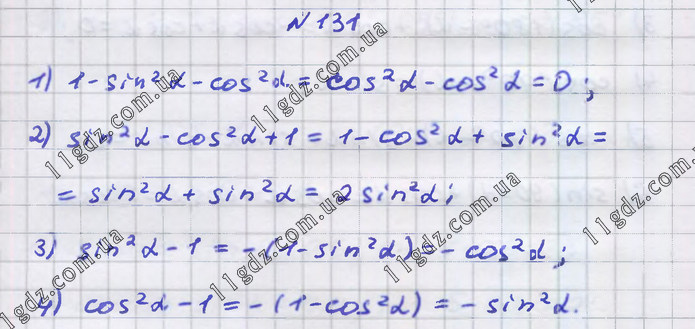 N 131
1) 1 - sin²α - cos²α = cos²α - cos²α = 0;
2) sin²α - cos²α + 1 = 1 - cos²α + sin²α =
= sin²α + sin²α = 2 sin²α;
3) sin²α - 1 = -(1 - sin²α) = - cos²α;
4) cos²α - 1 = -(1 - cos²α) = - sin²α.
11gdz.com.ua
11gdz.com.ua
11gdz.com.ua
11gdz.com.ua
11gdz.com.ua
11gdz.com.ua